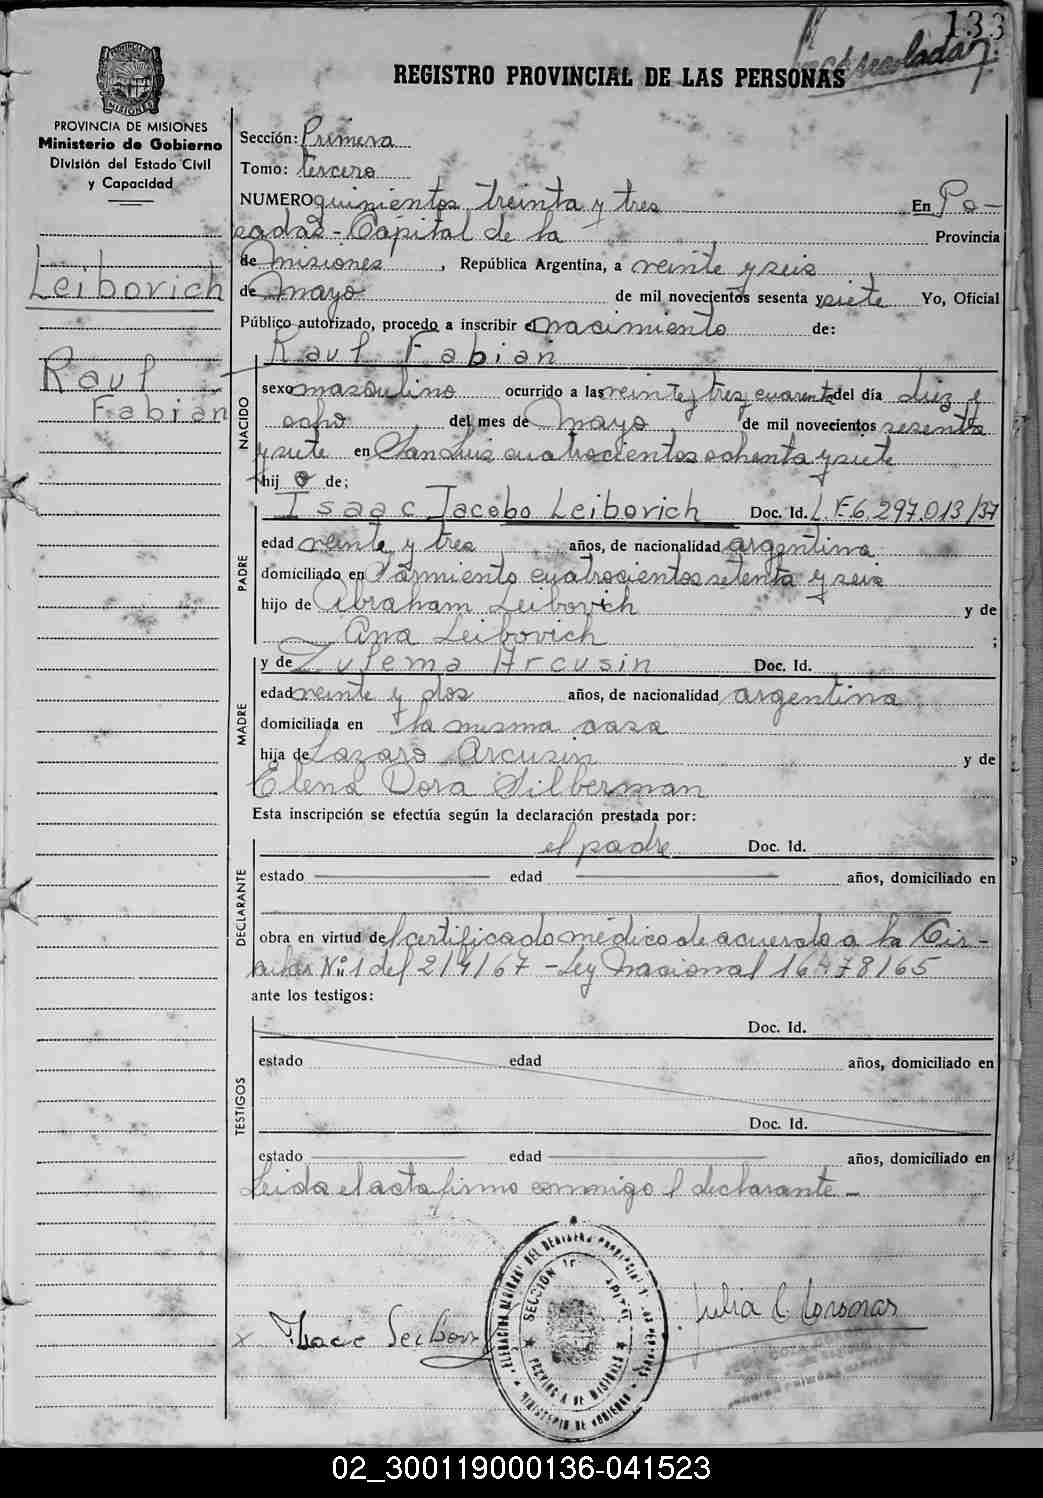 133
REGISTRO PROVINCIAL DE LAS PERSONAS
PROVINCIA DE MISIONES
Ministerio de Gobierno
División del Estado Civil
y Capacidad
Leibovich
Raul
Fabian
Sección: Primera
Tomo: tercero
NUMERO quinientos treinta y tres En Po-
sadas - Capital de la Provincia
de Misiones, República Argentina, a veinte y seis
de Mayo de mil novecientos sesenta y siete Yo, Oficial
Público autorizado, procedo a inscribir el nacimiento de:
Raul Fabian
NACIDO
sexo masculino ocurrido a las veinte y tres y cuarenta del día diez y
ocho del mes de Mayo de mil novecientos sesenta
y siete en San Luis cuatrocientos ochenta y siete
hijo de;
PADRE
Isaac Jacobo Leibovich Doc. Id. L.E.6.297.013/37
edad veinte y tres años, de nacionalidad argentina
domiciliado en Sarmiento cuatrocientos setenta y seis
hijo de Abraham Leibovich y de
Ana Leibovich ;
MADRE
y de Zulema Arcusin Doc. Id.
edad veinte y dos años, de nacionalidad argentina
domiciliada en la misma casa
hija de Lazaro Arcusin y de
Elena Dora Silberman
Esta inscripción se efectúa según la declaración prestada por:
DECLARANTE
el padre Doc. Id.
estado edad años, domiciliado en
obra en virtud del certificado médico de acuerdo a la Cir-
cular Nº 1 del 21/4/67 - Ley Nacional 16478/65
ante los testigos:
TESTIGOS
Doc. Id.
estado edad años, domiciliado en
Doc. Id.
estado edad años, domiciliado en
Leida el acta firma conmigo el declarante -
x Isaac Leibov
SECCION
PROVINCIA DE MISIONES
MINISTERIO DE GOBIERNO
Julia C
02_300119000136-041523